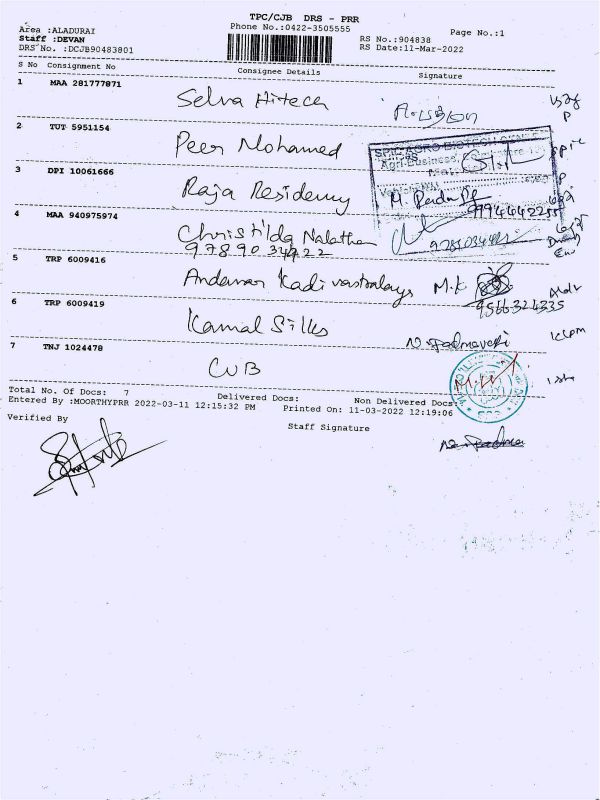 TPC/CJB DRS - PRR
Area :ALADURAI
Phone No.:0422-3505555
Page No.:1
Staff :DEVAN
RS No.:904838
DRS No. :DCJB90483801
RS Date:11-Mar-2022
S No Consignment No Consignee Details Signature
1 MAA 281777871 Selva Hitech
2 TUT 5951154 Peer Mohamed
SPIC AGRO BIOTECH CENTRE
Agri-Business
3 DPI 10061666 Raja Residency
9994442255
4 MAA 940975974 Christilda Nalathan
9789034922
5 TRP 6009416 Andavar Kadi vastralaya M.K
9566324335
6 TRP 6009419 Kamal Silks N. Padmavathi
7 TNJ 1024478 CUB
Total No. Of Docs: 7 Delivered Docs: Non Delivered Docs:
Entered By :MOORTHYPRR 2022-03-11 12:15:32 PM Printed On: 11-03-2022 12:19:06
Verified By Staff Signature